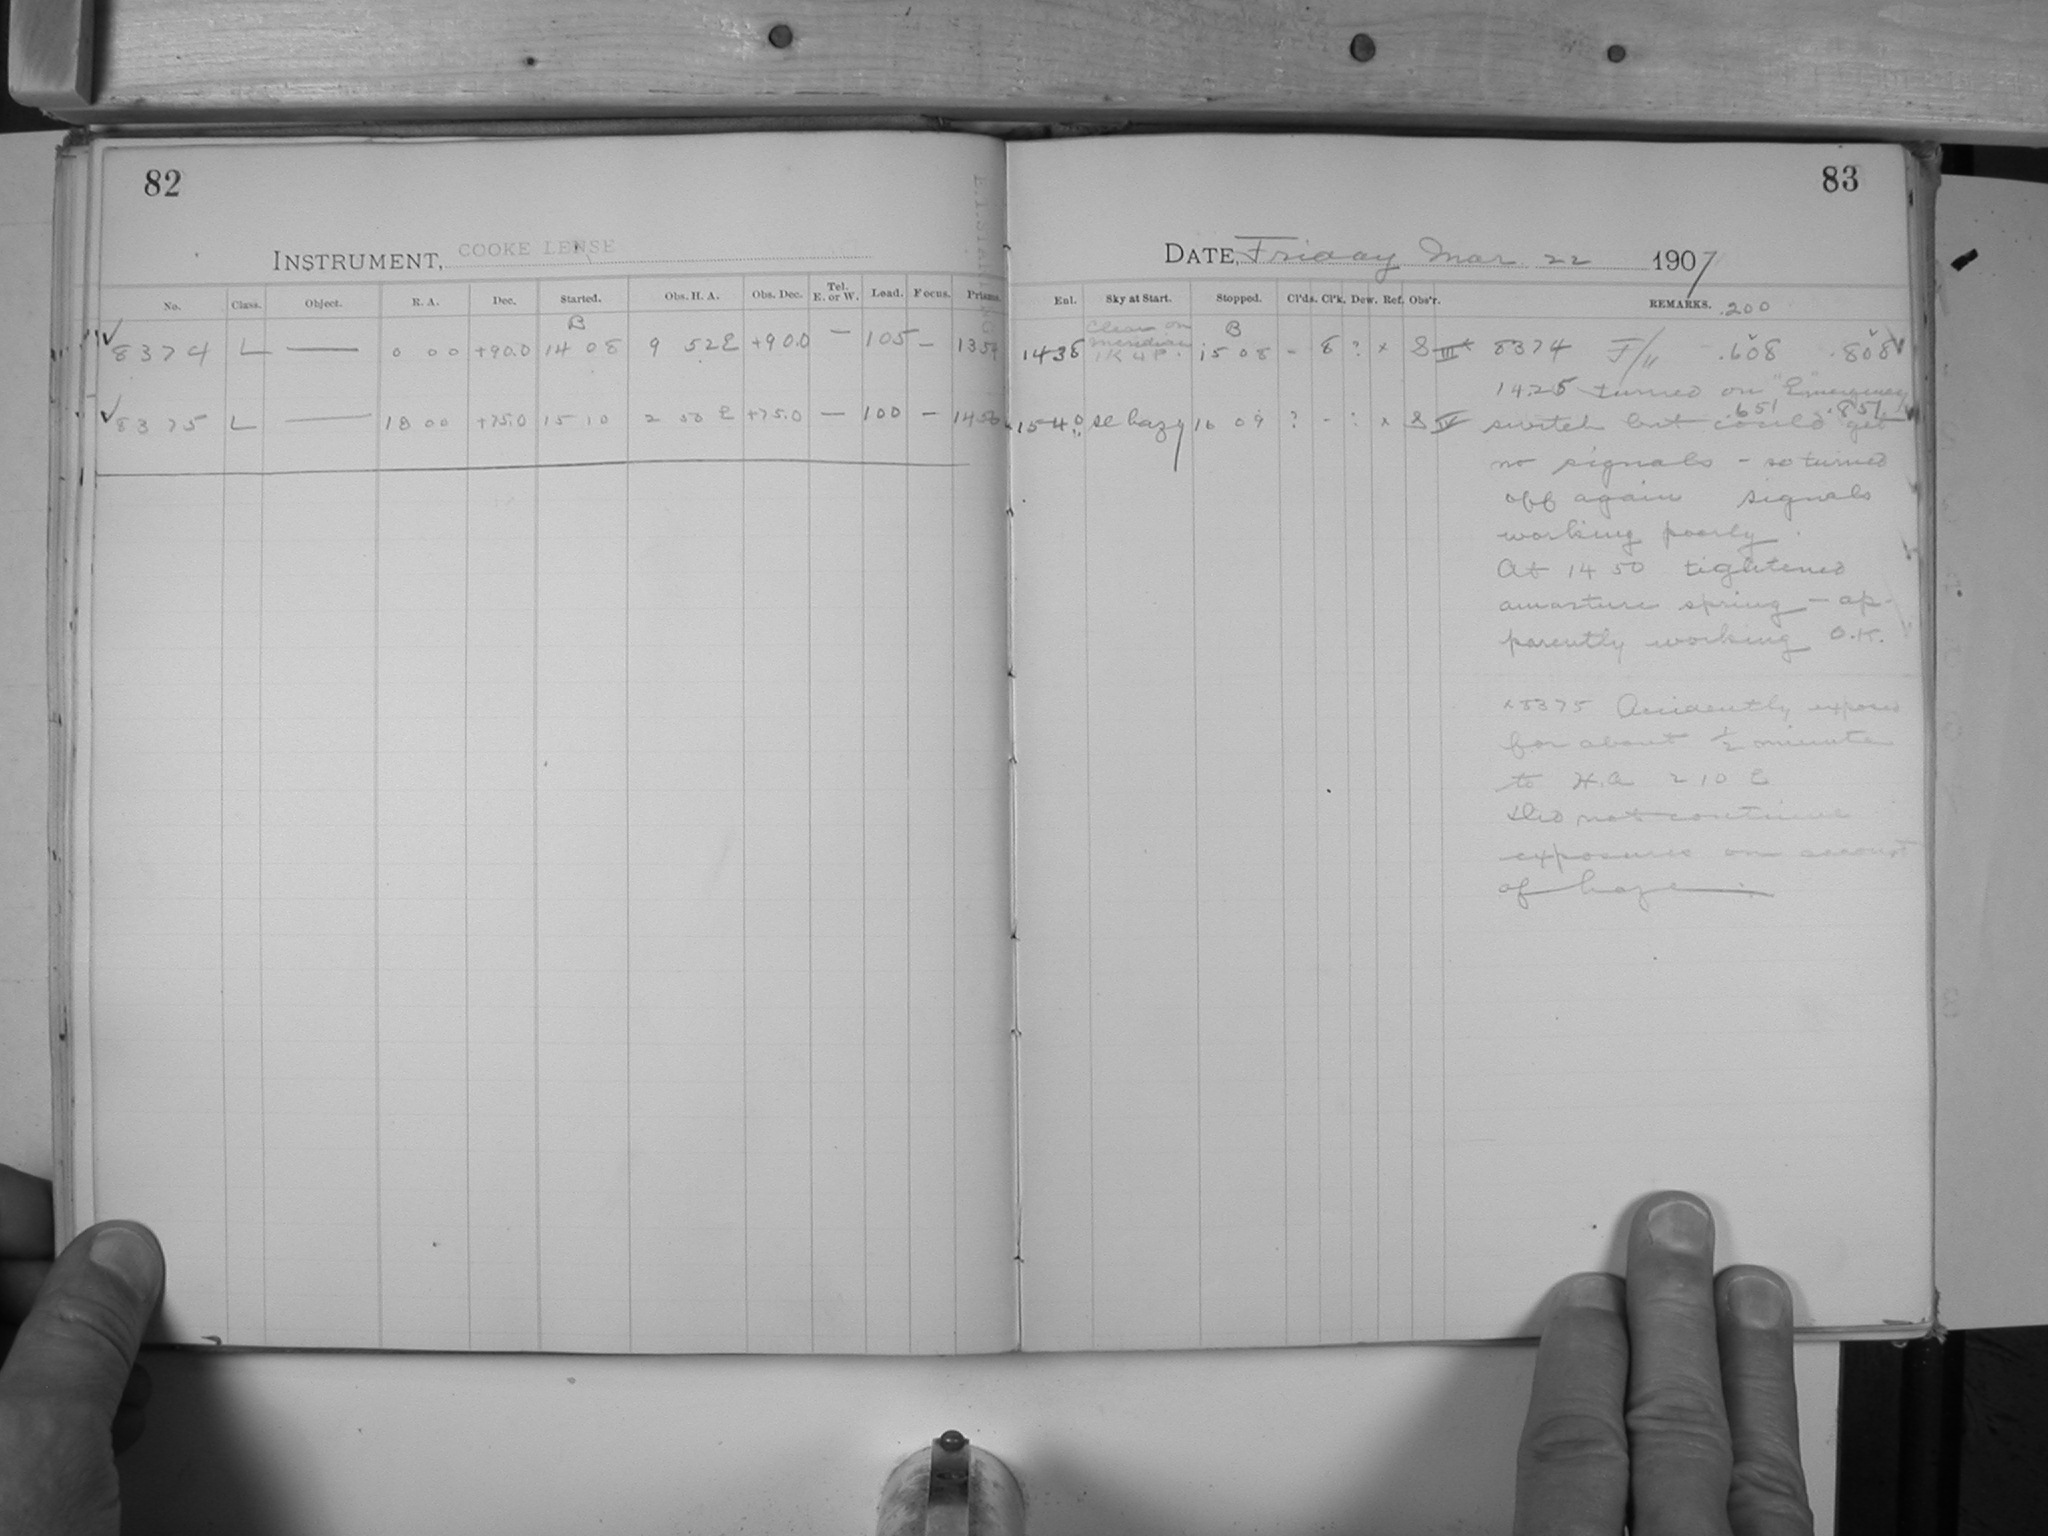 82
INSTRUMENT, COOKE LENSE
No. Class. Object. R. A. Dec. Started. Obs. H. A. Obs. Dec. Tel. E. or W. Lead. Focus. Prisms.
B
✓ 8374 L — 0 00 +90.0 14 08 9 52 E +90.0 — 105 — 1354
✓ 8375 L — 18 00 +75.0 15 10 2 50 E +75.0 — 100 — 1456
83
DATE, Friday Mar 22 1907
Enl. Sky at Start. Stopped. Cl'ds. Cl'k. Dew. Ref. Obs'r. REMARKS. .200
1438 Clear on meridian 1K 4P. B 15 08 - 8 ? x S III x 8374 F/11 .608 .808
1540 se hazy 16 09 ? - : x S IV
1425 turned on "Emergency"
.651 .851
switch but could get
no signals - so turned
off again signals
working poorly.
At 14 50 tightened
amarture spring - ap-
parently working O.K.
x8375 Accidently exposed
for about ½ minute
to H.A 2 10 E
Did not continue
exposures on account
of haze